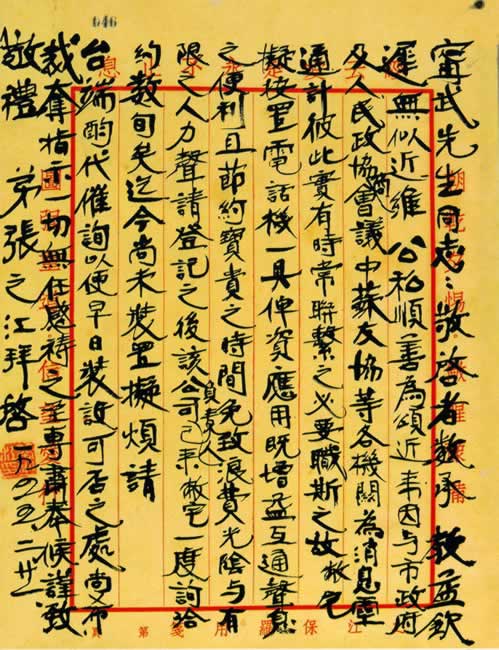 646
甯武先生同志：敬啓者数承 教益欽
遲無似近維 公私順善為頌近来因与市政府
及人民政協商會議中蘇友協等各機關為消息靈
通計彼此實有時常聯繫之必要職斯之故敝宅
擬按置電話機一具俾資應用既增益互通聲息
之便利且節約寶貴之時間免致浪費人光陰与有
限之人力聲請登記之後該公司負責人已来敝宅一度詢洽
約数旬矣迄今尚未裝置擬煩請
台端酌代催詢以便早日裝設可否之處尚希
裁奪指示一切無任感禱之至專肅奉候謹致
敬禮 弟張之江拜啓 一九五五 二 廿一
江保羅用箋
第 頁